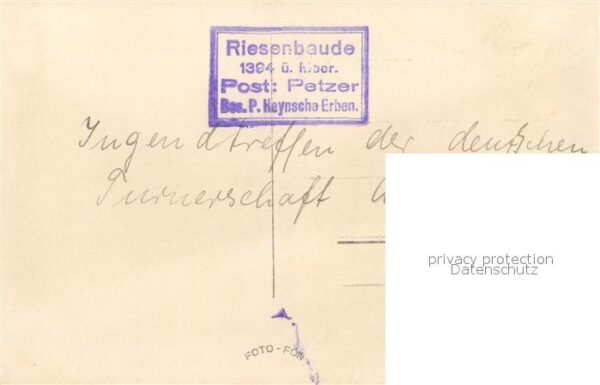 Riesenbaude
1394 ü. Meer.
Post: Petzer
Bes. P. Heynsche Erben.
Jugendtreffen der deutschen
Turnerschaft
privacy protection
Datenschutz
FOTO-FON